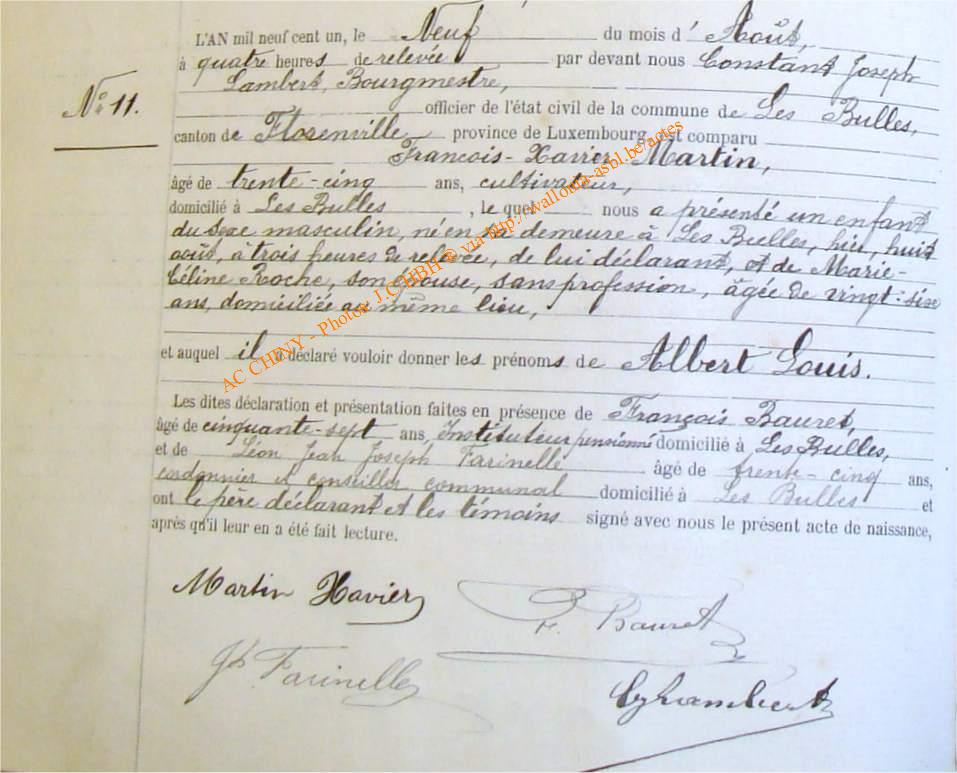 L'AN mil neuf cent un, le Neuf du mois d' Août,
à quatre heures de relevée par devant nous Constant Joseph
Lambert, Bourgmestre,
officier de l'état civil de la commune de Les Bulles,
N° 11.
canton de Florenville province de Luxembourg, est comparu
François-Xavier Martin,
âgé de trente-cinq ans, cultivateur,
domicilié à Les Bulles, le quel nous a présenté un enfant
du sexe masculin, né en sa demeure à Les Bulles, hier, huit
août, à trois heures de relevée, de lui déclarant, et de Marie-
Céline Roche, son épouse, sans profession, âgée de vingt-six
ans, domiciliée au même lieu,
et auquel il a déclaré vouloir donner les prénoms de Albert Louis.
Les dites déclaration et présentation faites en présence de François Bauret,
âgé de cinquante-sept ans, Instituteur pensionné domicilié à Les Bulles,
et de Léon Jean Joseph Farinelle âgé de trente-cinq ans,
cordonnier et conseiller communal domicilié à Les Bulles et
ont le père déclarant et les témoins signé avec nous le présent acte de naissance,
après qu'il leur en a été fait lecture.
Martin Xavier
F. Bauret
Jh Farinelle
Lambert
AC CHINY - Photos J.C HBH © via http://wallonia-asbl.be/actes